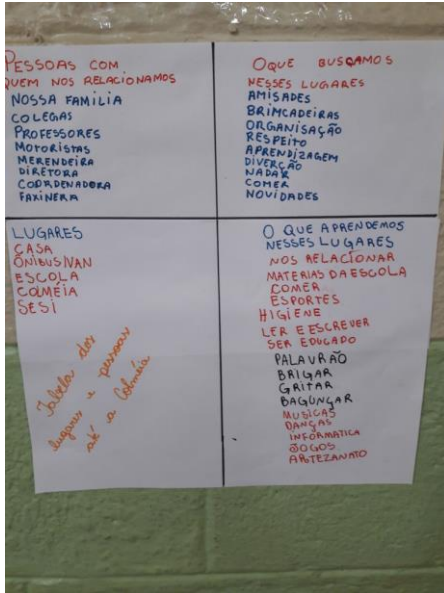 PESSOAS COM
QUEM NOS RELACIONAMOS
NOSSA FAMILIA
COLEGAS
PROFESSORES
MOTORISTAS
MERENDEIRA
DIRETORA
COORDENADORA
FAXINERA
OQUE BUSCAMOS
NESSES LUGARES
AMISADES
BRIMCADEIRAS
ORGANISAÇÃO
RESPEITO
APRENDIZAGEM
DIVERÇÃO
NADAR
COMER
NOVIDADES
LUGARES
CASA
ÔNIBUS/VAN
ESCOLA
COLMÉIA
SESI
Tabela dos
lugares e pessoas
até a Colméia
O QUE APRENDEMOS
NESSES LUGARES
NOS RELACIONAR
MATERIAS DA ESCOLA
COMER
ESPORTES
HIGIENE
LER E ESCREVER
SER EDUCADO
PALAVRÃO
BRIGAR
GRITAR
BAGUNÇAR
MUSICAS
DANÇAS
INFORMATICA
JOGOS
ARTEZANATO